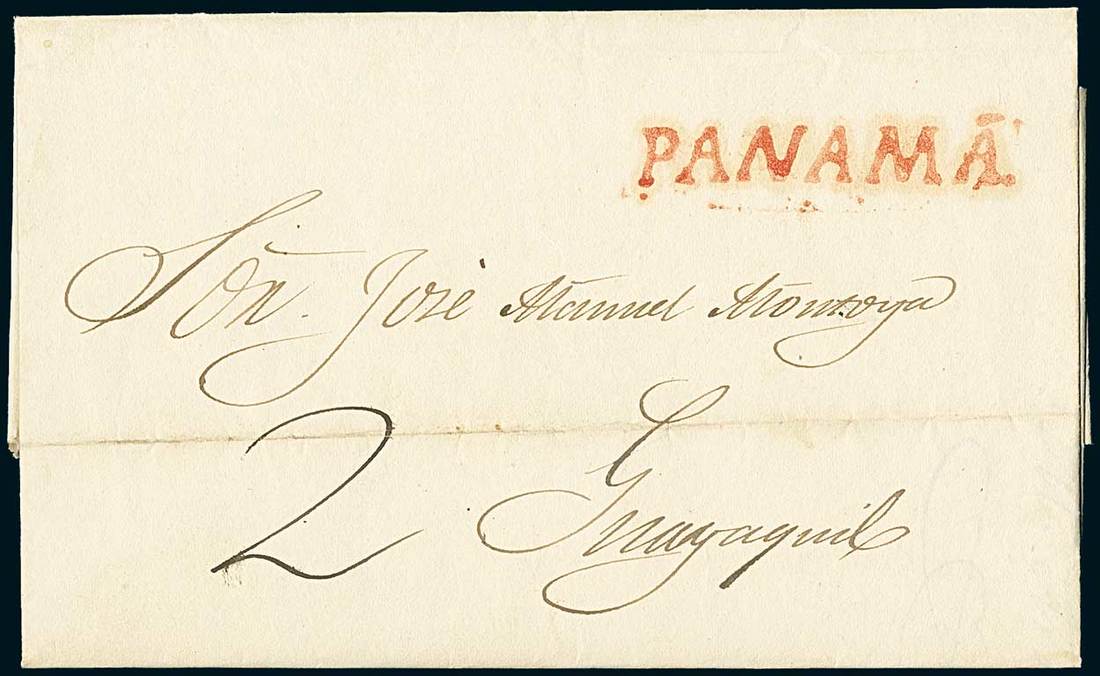 PANAMÁ
Sõn. José Manuel Montoya
2
Guayaquil